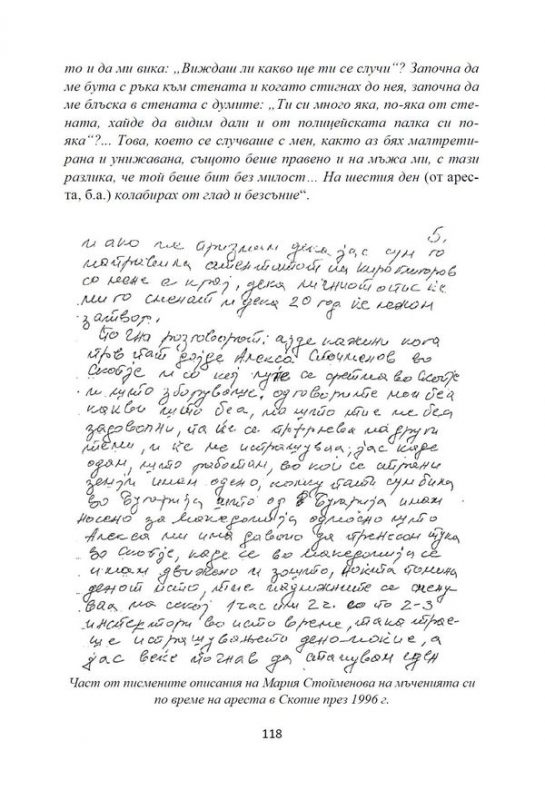 то и да ми вика: „Виждаш ли какво ще ти се случи“? Започна да
ме бута с ръка към стената и когато стигнах до нея, започна да
ме блъска в стената с думите: „Ти си много яка, по-яка от сте-
ната, хайде да видим дали и от полицейската палка си по-
яка“?... Това, което се случваше с мен, както аз бях малтрети-
рана и унижавана, същото беше правено и на мъжа ми, с тази
разлика, че той беше бит без милост... На шестия ден (от арес-
та, б.а.) колабирах от глад и безсъние“.
5.
и ако не признам дека јас сум го
направила атентатот на Киро Глигоров
со мене е крај, дека личниот опис ќе
ми го сменат и дека 20 год ќе лежам
затвор.
Почна разговорот: ајде кажи ни кога
прв пат дојде Алекса Стојменов во
Скопје и со кој луѓе се сретна во Скопје
и што зборуваше. одговорите мои беа
какви што беа, но што тие не беа
задоволни, па ќе се префрлеа на други
теми, и ќе ме испрашуваа; јас каде
одам, што работам, во кои се страни
земји имам одено, колку пати сум била
во Бугарија што од Бугарија имам
носено за Македонија односно што
Алекса ми има давано да пренесам тука
во Скопје, каде се во Македонија се
имам движено и зошто, ноќта помина
денот исто, тие најмногу се смену
ваа на секој 1 час или 2 ч. со по 2-3
инспектори во исто време, така трае-
ше испрашувањето дено-ноќие, а
јас веќе почнав да станувам еден
Част от писмените описания на Мария Стойменова на мъченията си
по време на ареста в Скопие през 1996 г.
118